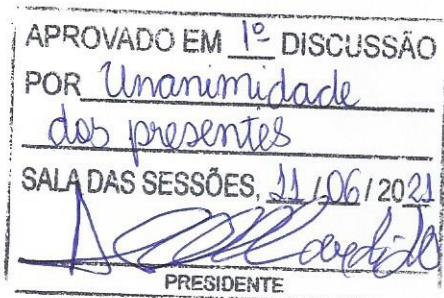 APROVADO EM 1º DISCUSSÃO
POR Unanimidade
dos presentes
SALA DAS SESSÕES, 11 / 06 / 2021
PRESIDENTE